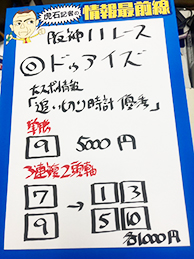 虎石記者の
情報最前線
阪神11レース
◎ドゥアイズ
たスポ情報
「追い切り時計優秀」
単勝
9 5000円
3連複2頭軸
7 → 1 3
9 5 10
各1000円